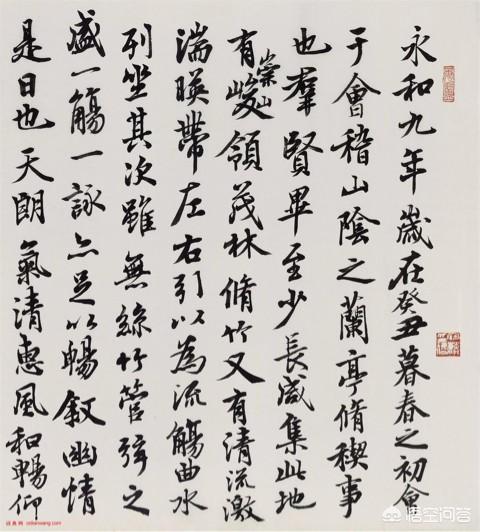 永和九年歲在癸丑暮春之初會
于會稽山陰之蘭亭脩稧事
也羣賢畢至少長咸集此地
有崇山峻領茂林脩竹又有清流激
湍暎帶左右引以為流觴曲水
列坐其次雖無絲竹管弦之
盛一觴一詠亦足以暢敘幽情
是日也天朗氣清惠風和暢仰
词典网 cidianwang.com
悟空问答